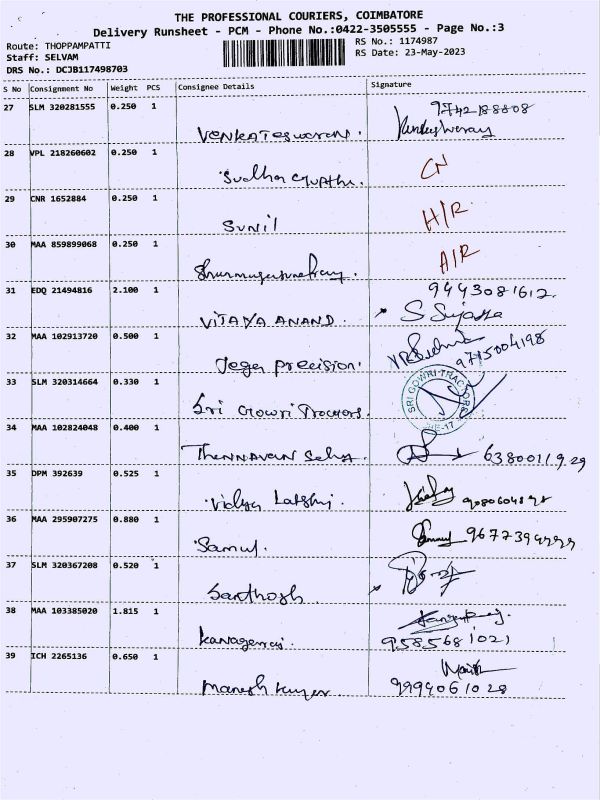 THE PROFESSIONAL COURIERS, COIMBATORE
Delivery Runsheet - PCM - Phone No.:0422-3505555 - Page No.:3
Route: THOPPAMPATTI RS No.: 1174987
Staff: SELVAM RS Date: 23-May-2023
DRS No.: DCJB117498703
S No Consignment No Weight PCS Consignee Details Signature
27 SLM 320281555 0.250 1 9742188808
VENKATESWARAN.
28 VPL 218260602 0.250 1 CN
Sudha
29 CNR 1652884 0.250 1 H/R
SUNIL
30 MAA 859899068 0.250 1 A/R
31 EDQ 21494816 2.100 1 9443081612.
VIJAYA ANAND. S Sujatha
32 MAA 102913720 0.500 1
Jega precision. 9715004198
33 SLM 320314664 0.330 1 SRI GOWRI TRACTORS
Sri Gowri Tractors.
34 MAA 102824048 0.400 1
THENNAVAN 6380011929
35 DPM 392639 0.525 1
Vidya Lakshmi.
36 MAA 295907275 0.880 1
Samul.
37 SLM 320367208 0.520 1
Santhosh.
38 MAA 103385020 1.815 1
Kanagaraj. 9585681021
39 ICH 2265136 0.650 1
Manesh Kumar. 9994061028